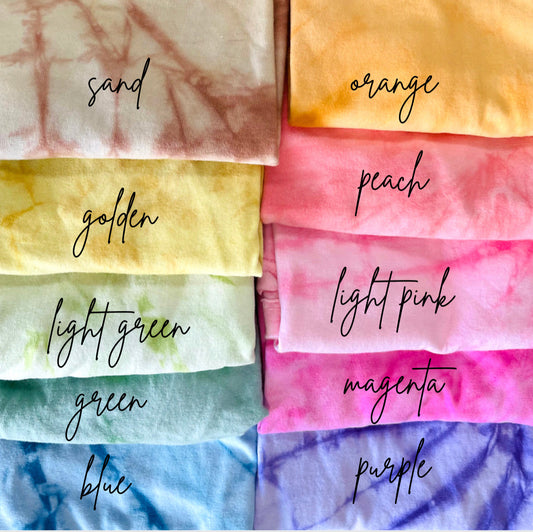 sand
orange
golden
peach
light green
light pink
green
magenta
blue
purple